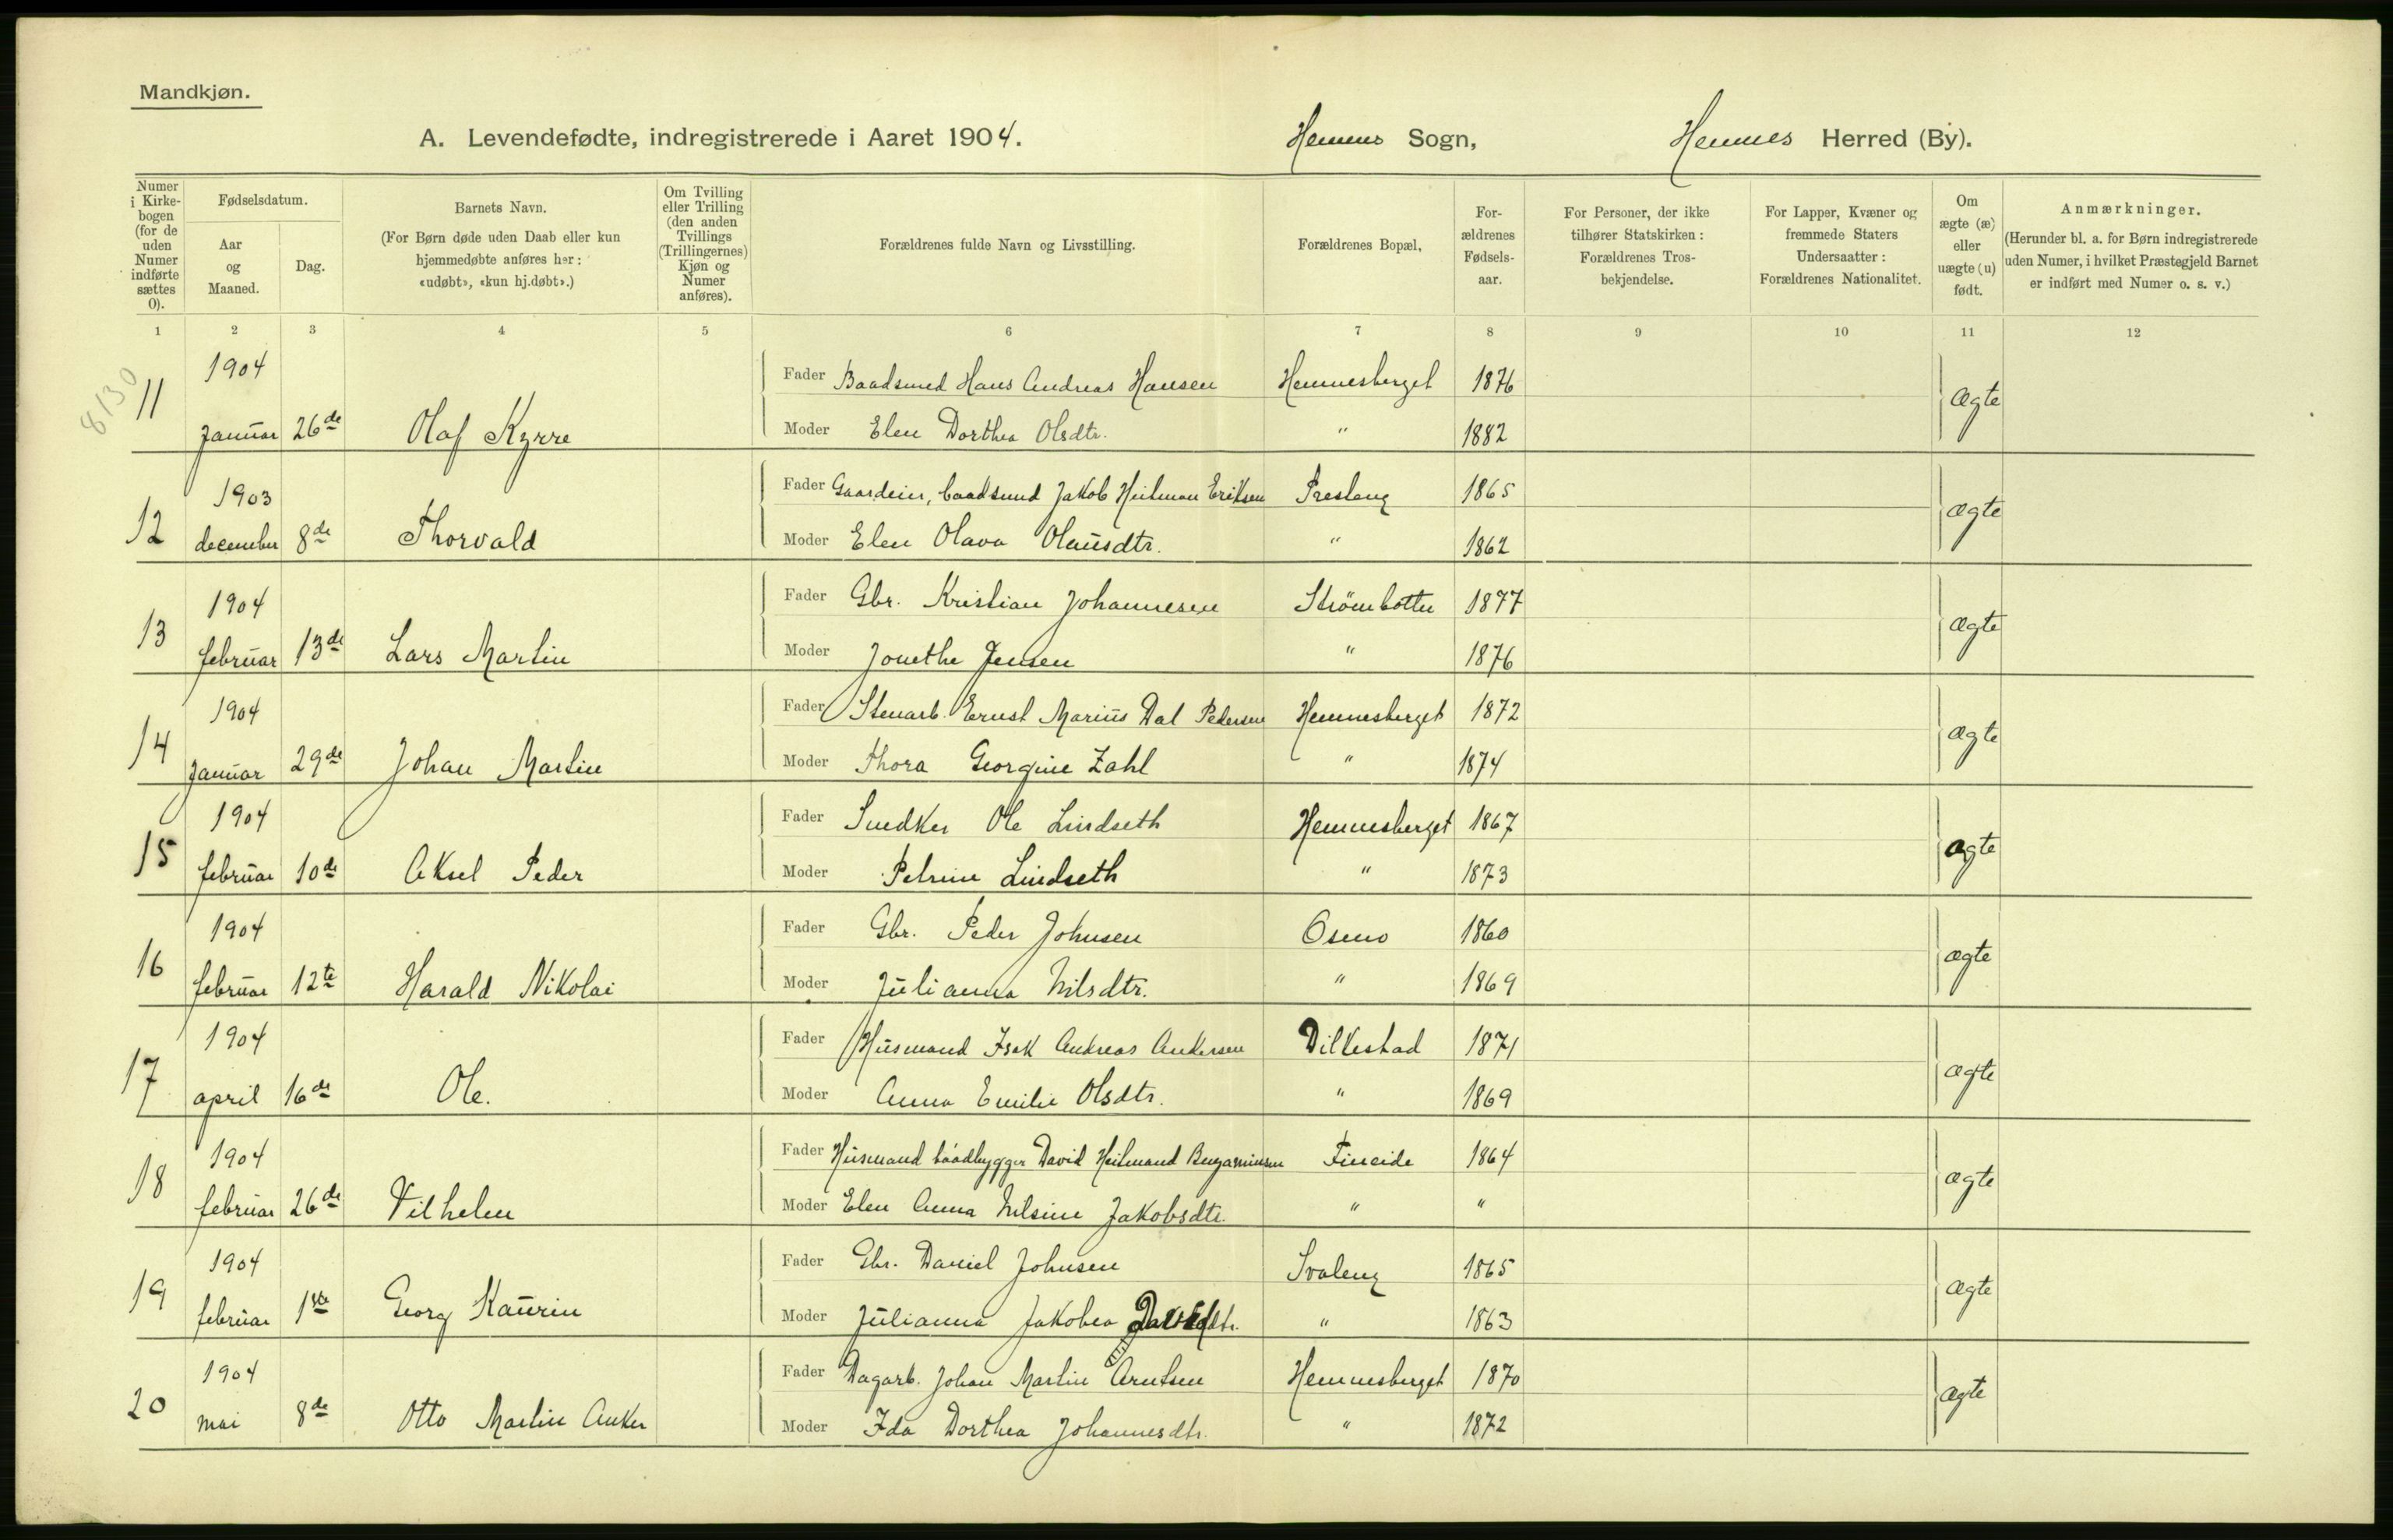 Mandkjøn.
A. Levendefødte, indregistrerede i Aaret 1904. Hemnes Sogn, Hemnes Herred (By).
Numer i Kirkebogen (for de uden Numer indførte sættes 0).
Fødselsdatum.
Aar og Maaned.
Dag.
Barnets Navn.
(For Børn døde uden Daab eller kun
hjemmedøbte anføres her:
«udøbt», «kun hj.døbt».)
Om Tvilling
eller Trilling
(den anden
Tvillings
(Trillingernes)
Kjøn og
Numer
anføres).
Forældrenes fulde Navn og Livsstilling.
Forældrenes Bopæl,
For-
ældrenes
Fødsels-
aar.
For Personer, der ikke
tilhører Statskirken:
Forældrenes Tros-
bekjendelse.
For Lapper, Kvæner og
fremmede Staters
Undersaatter:
Forældrenes Nationalitet.
Om
ægte (æ)
eller
uægte (u)
født.
Anmærkninger.
(Herunder bl. a. for Børn indregistrerede
uden Numer, i hvilket Præstegjeld Barnet
er indført med Numer o. s. v.)
1 2 3 4 5 6 7 8 9 10 11 12
8130
11 1904 Fader Baadsmed Hans Andreas Hansen Hemnesberget 1876 ægte
Januar 26de Olaf Kyrre Moder Elen Dorthea Olsdtr. " 1882
12 1903 Fader Gaardeier, baadsmed Jakob Heilman Eriksen Presteng 1865 ægte
december 8de Thorvald Moder Elen Olava Olausdtr. " 1862
13 1904 Fader Gbr. Kristian Johannesen Strömbotten 1877 ægte
februar 13de Lars Martin Moder Jonethe Jensen " 1876
14 1904 Fader Stenarb. Ernst Marius Dal Pedersen Hemnesberget 1872 ægte
Januar 29de Johan Martin Moder Thora Georgine Zahl " 1874
15 1904 Fader Snedker Ole Lindseth Hemnesberget 1867 ægte
februar 10de Aksel Peder Moder Petrine Lindseth " 1873
16 1904 Fader Gbr. Peder Johnsen Osmo 1860 ægte
februar 12te Harald Nikolai Moder Julianna Nilsdtr. " 1869
17 1904 Fader Husmand Isak Andreas Andersen Dilkestad 1871 ægte
april 16de Ole. Moder Anna Emilie Olsdtr. " 1869
18 1904 Fader Husmand baadbygger David Heilmand Benjaminsen Fineide 1864 ægte
februar 26de Vilhelm Moder Elen Anna Nilsine Jakobsdtr. " "
19 1904 Fader Gbr. Daniel Johnsen Svaleng 1865 ægte
februar 1ste Georg Kaurin Moder Julianna Jakobea " 1863
20 1904 Fader Dagarb. Johan Martin Arntsen Hemnesberget 1870 ægte
mai 8de Otto Martin Anker Moder Ida Dorthea Johannesdtr. " 1872